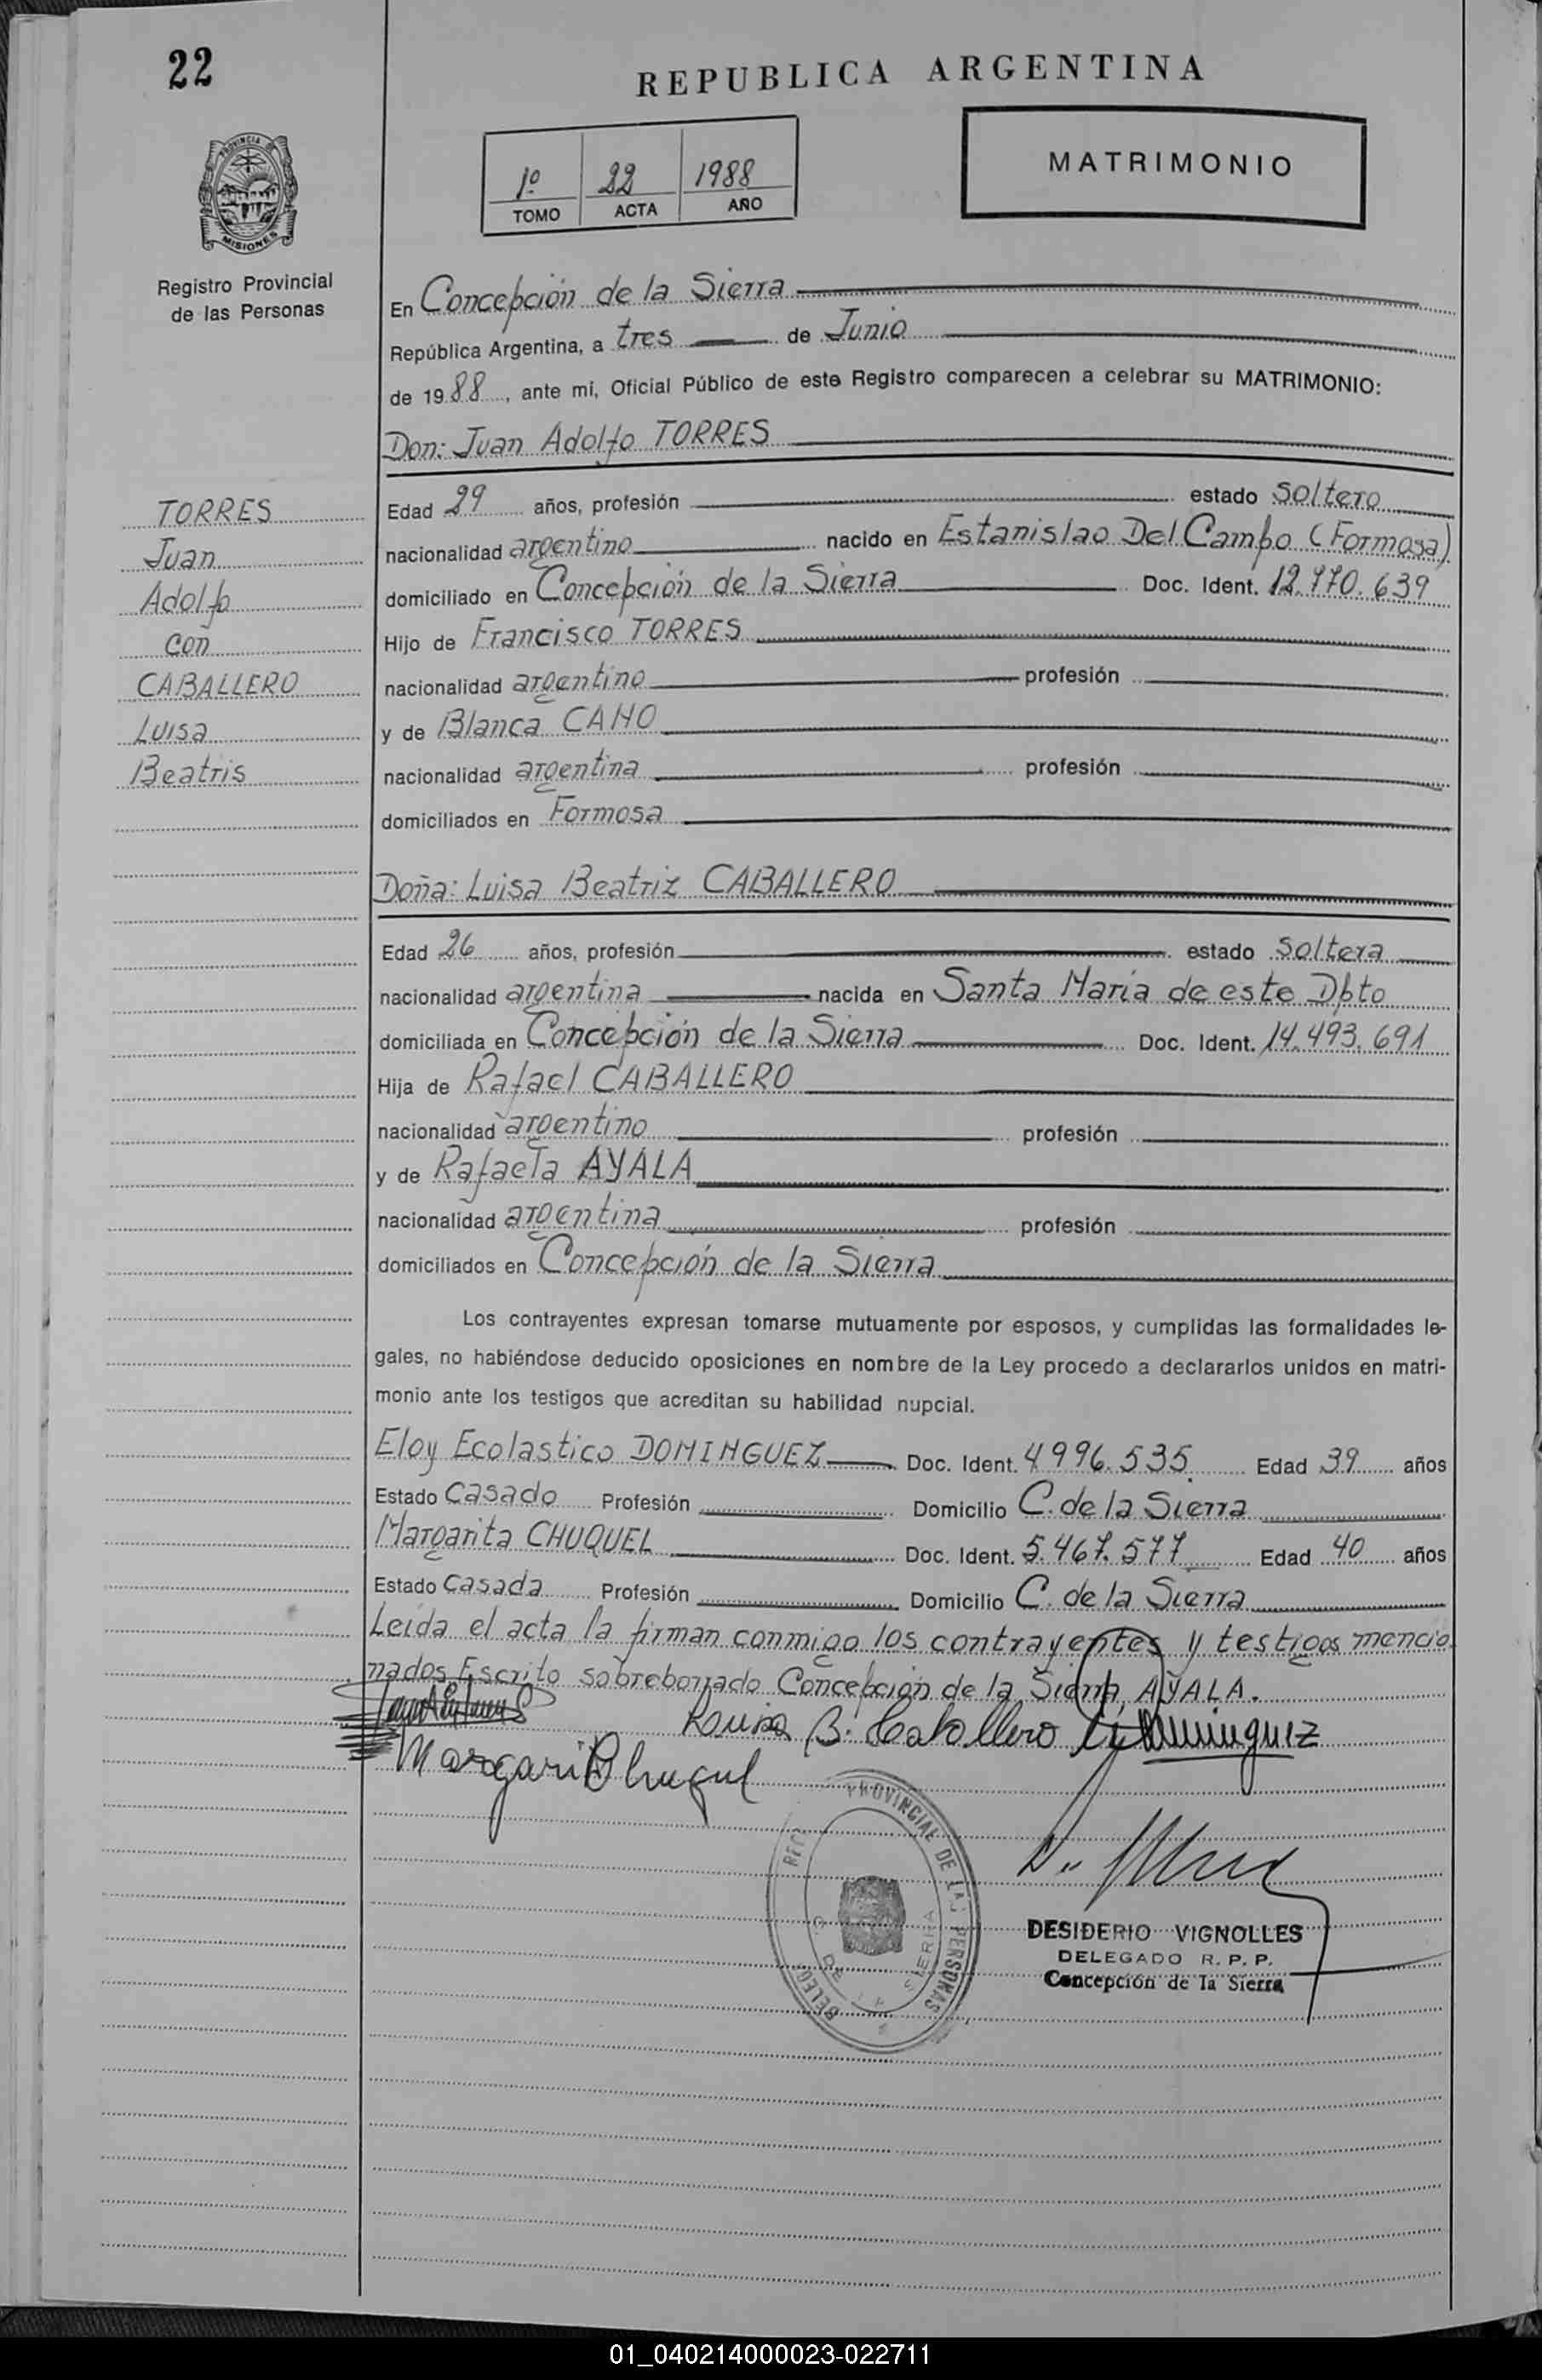 22
REPUBLICA ARGENTINA
1º 22 1988
TOMO ACTA AÑO
MATRIMONIO
PROVINCIA DE
MISIONES
Registro Provincial
de las Personas
En Concepción de la Sierra
República Argentina, a tres de Junio
de 1988, ante mi, Oficial Público de este Registro comparecen a celebrar su MATRIMONIO:
Don: Juan Adolfo TORRES
TORRES
Juan
Adolfo
con
CABALLERO
Luisa
Beatris
Edad 29 años, profesión estado soltero
nacionalidad argentino nacido en Estanislao Del Campo (Formosa)
domiciliado en Concepción de la Sierra Doc. Ident. 12.770.639
Hijo de Francisco TORRES
nacionalidad argentino profesión
y de Blanca CANO
nacionalidad argentina profesión
domiciliados en Formosa
Doña: Luisa Beatriz CABALLERO
Edad 26 años, profesión estado soltera
nacionalidad argentina nacida en Santa María de este Dpto
domiciliada en Concepción de la Sierra Doc. Ident. 14.493.691
Hija de Rafael CABALLERO
nacionalidad argentino profesión
y de Rafaela AYALA
nacionalidad argentina profesión
domiciliados en Concepción de la Sierra
Los contrayentes expresan tomarse mutuamente por esposos, y cumplidas las formalidades le-
gales, no habiéndose deducido oposiciones en nombre de la Ley procedo a declararlos unidos en matri-
monio ante los testigos que acreditan su habilidad nupcial.
Eloy Ecolastico DOMINGUEZ Doc. Ident. 4.996.535 Edad 39 años
Estado Casado Profesión Domicilio C. de la Sierra
Margarita CHUQUEL Doc. Ident. 5.467.577 Edad 40 años
Estado Casada Profesión Domicilio C. de la Sierra
Leída el acta la firman conmigo los contrayentes y testigos mencio
nados Escrito sobreborrado Concepción de la Sierra, AYALA.
Louisa B. Caballero Dominguez
Margarit Chuqul
PROVINCIAL DE LAS PERSONAS
DE LA SIERRA
DESIDERIO VIGNOLLES
DELEGADO R. P. P.
Concepción de la Sierra
01_040214000023-022711